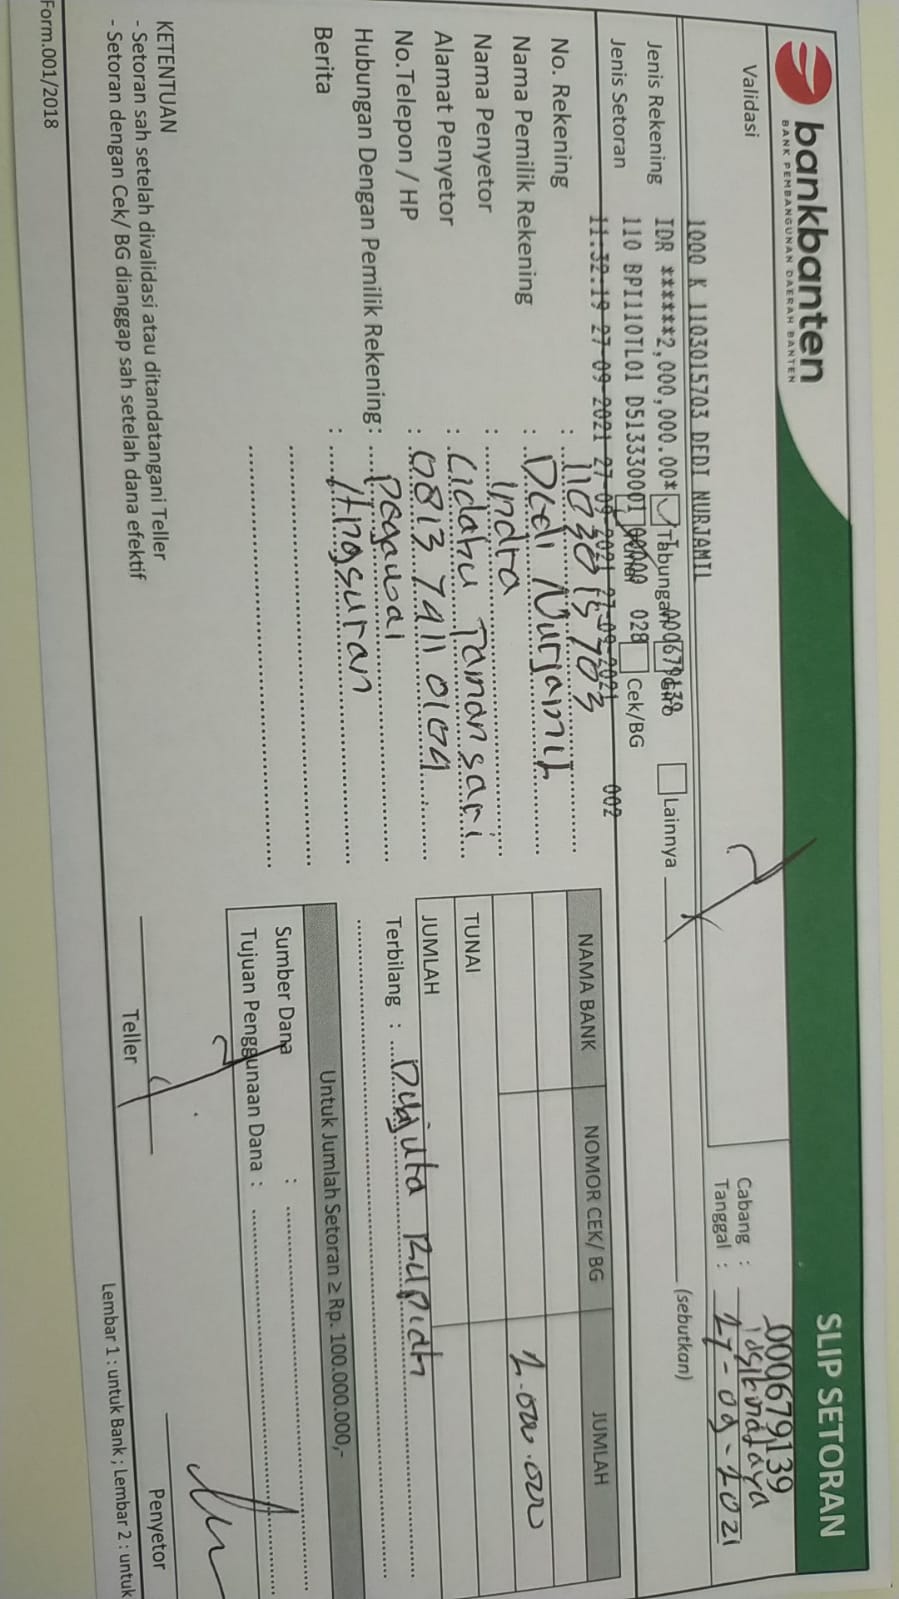 bankbanten
BANK PEMBANGUNAN DAERAH BANTEN
SLIP SETORAN
000679139
Cabang : Tasikmalaya
Tanggal : 27-09-2021
Validasi
1000 K 1103015703 DEDI NURJAMIL
IDR ******2,000,000.00* 000679139
110 BPI110TL01 D5133300 00000 028
11.32.19 27-09-2021 27-09-2021 27-09-2021 002
Jenis Rekening Tabungan Giro Lainnya (sebutkan)
Jenis Setoran Tunai Cek/BG
No. Rekening : 1103015703
Nama Pemilik Rekening : Dedi Nurjamil
Nama Penyetor : Indra
Alamat Penyetor : Cidahu Tamansari
No.Telepon / HP : 0813 7411 0104
Hubungan Dengan Pemilik Rekening: Pegawai
Berita : Angsuran
NAMA BANK NOMOR CEK/ BG JUMLAH
2.000.000
TUNAI
JUMLAH
Terbilang : Dua juta Rupiah
Untuk Jumlah Setoran ≥ Rp. 100.000.000,-
Sumber Dana :
Tujuan Penggunaan Dana :
KETENTUAN
- Setoran sah setelah divalidasi atau ditandatangani Teller
- Setoran dengan Cek/ BG dianggap sah setelah dana efektif
Teller
Penyetor
Form.001/2018
Lembar 1 : untuk Bank ; Lembar 2 : untuk